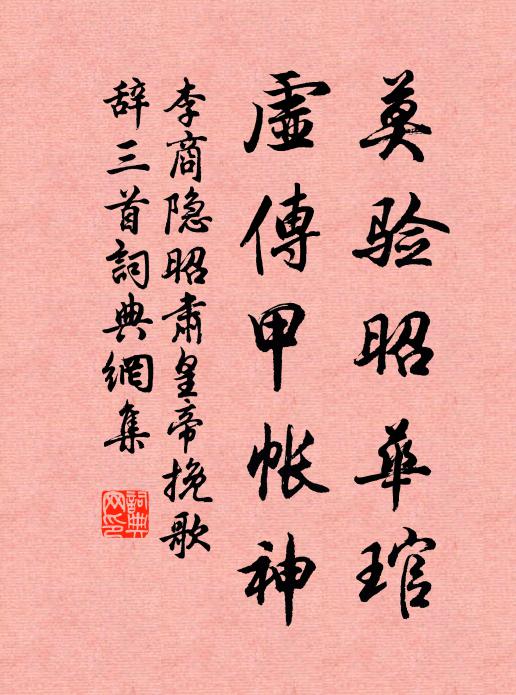 莫验昭华琯
虚傳甲帐神
李商隐昭肃皇帝挽歌
辞三首詞典網集
詞典网印